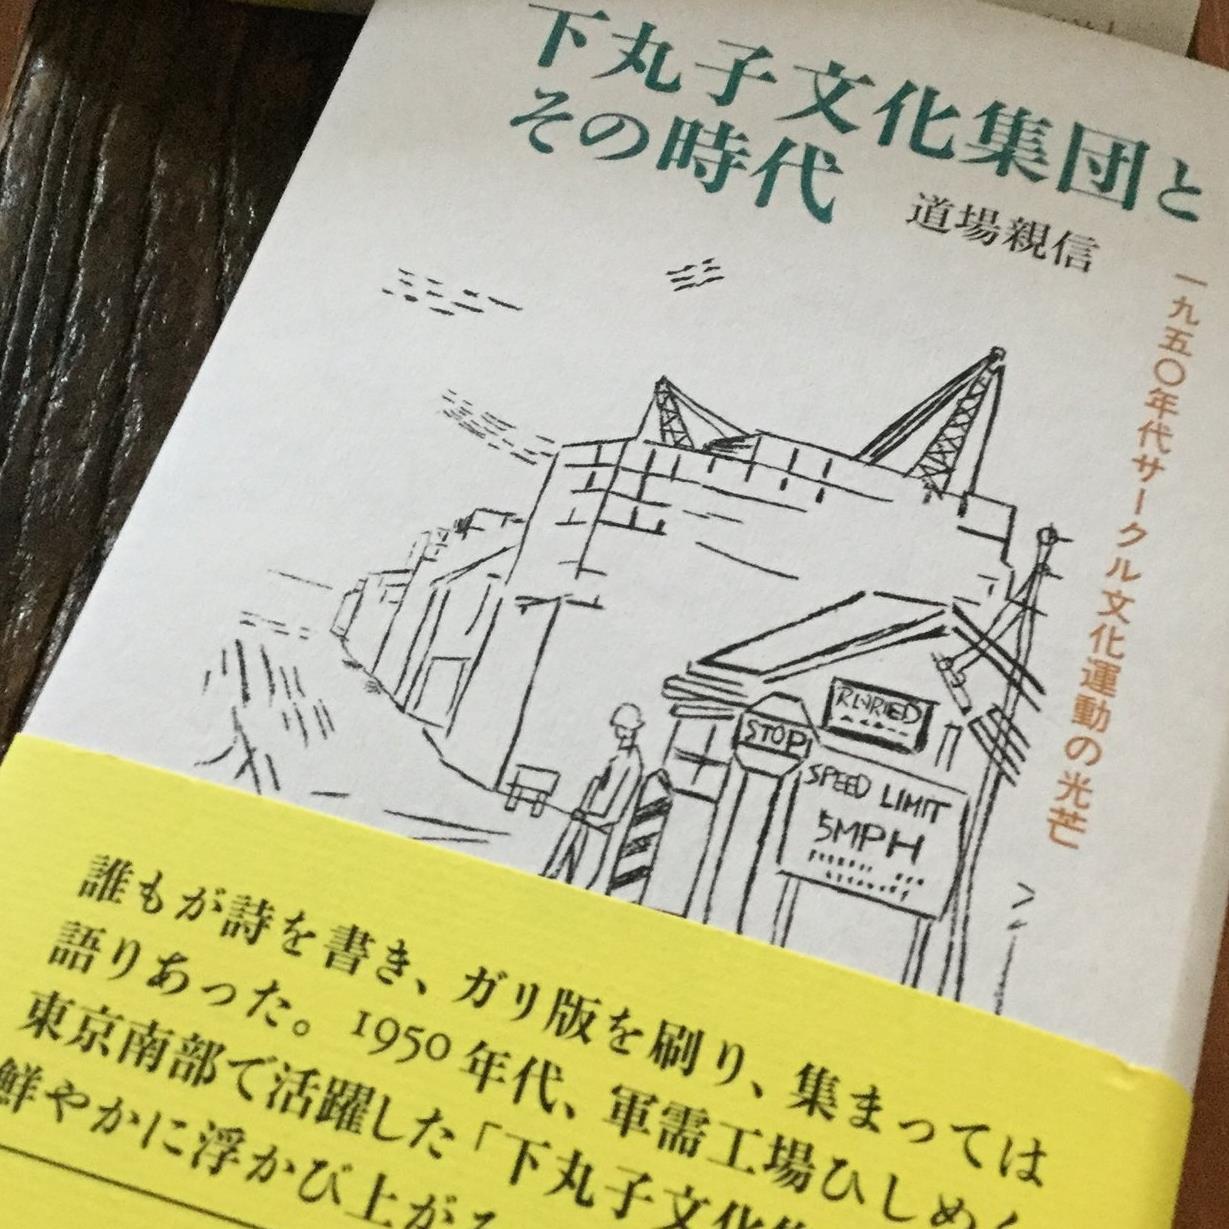 下丸子文化集団と
その時代
道場親信
一九五〇年代サークル文化運動の光芒
STOP
SPEED LIMIT
5MPH
誰もが詩を書き、ガリ版を刷り、集まっては
語りあった。1950年代、軍需工場ひしめく
東京南部で活躍した「下丸子文化集
鮮やかに浮かび上がる